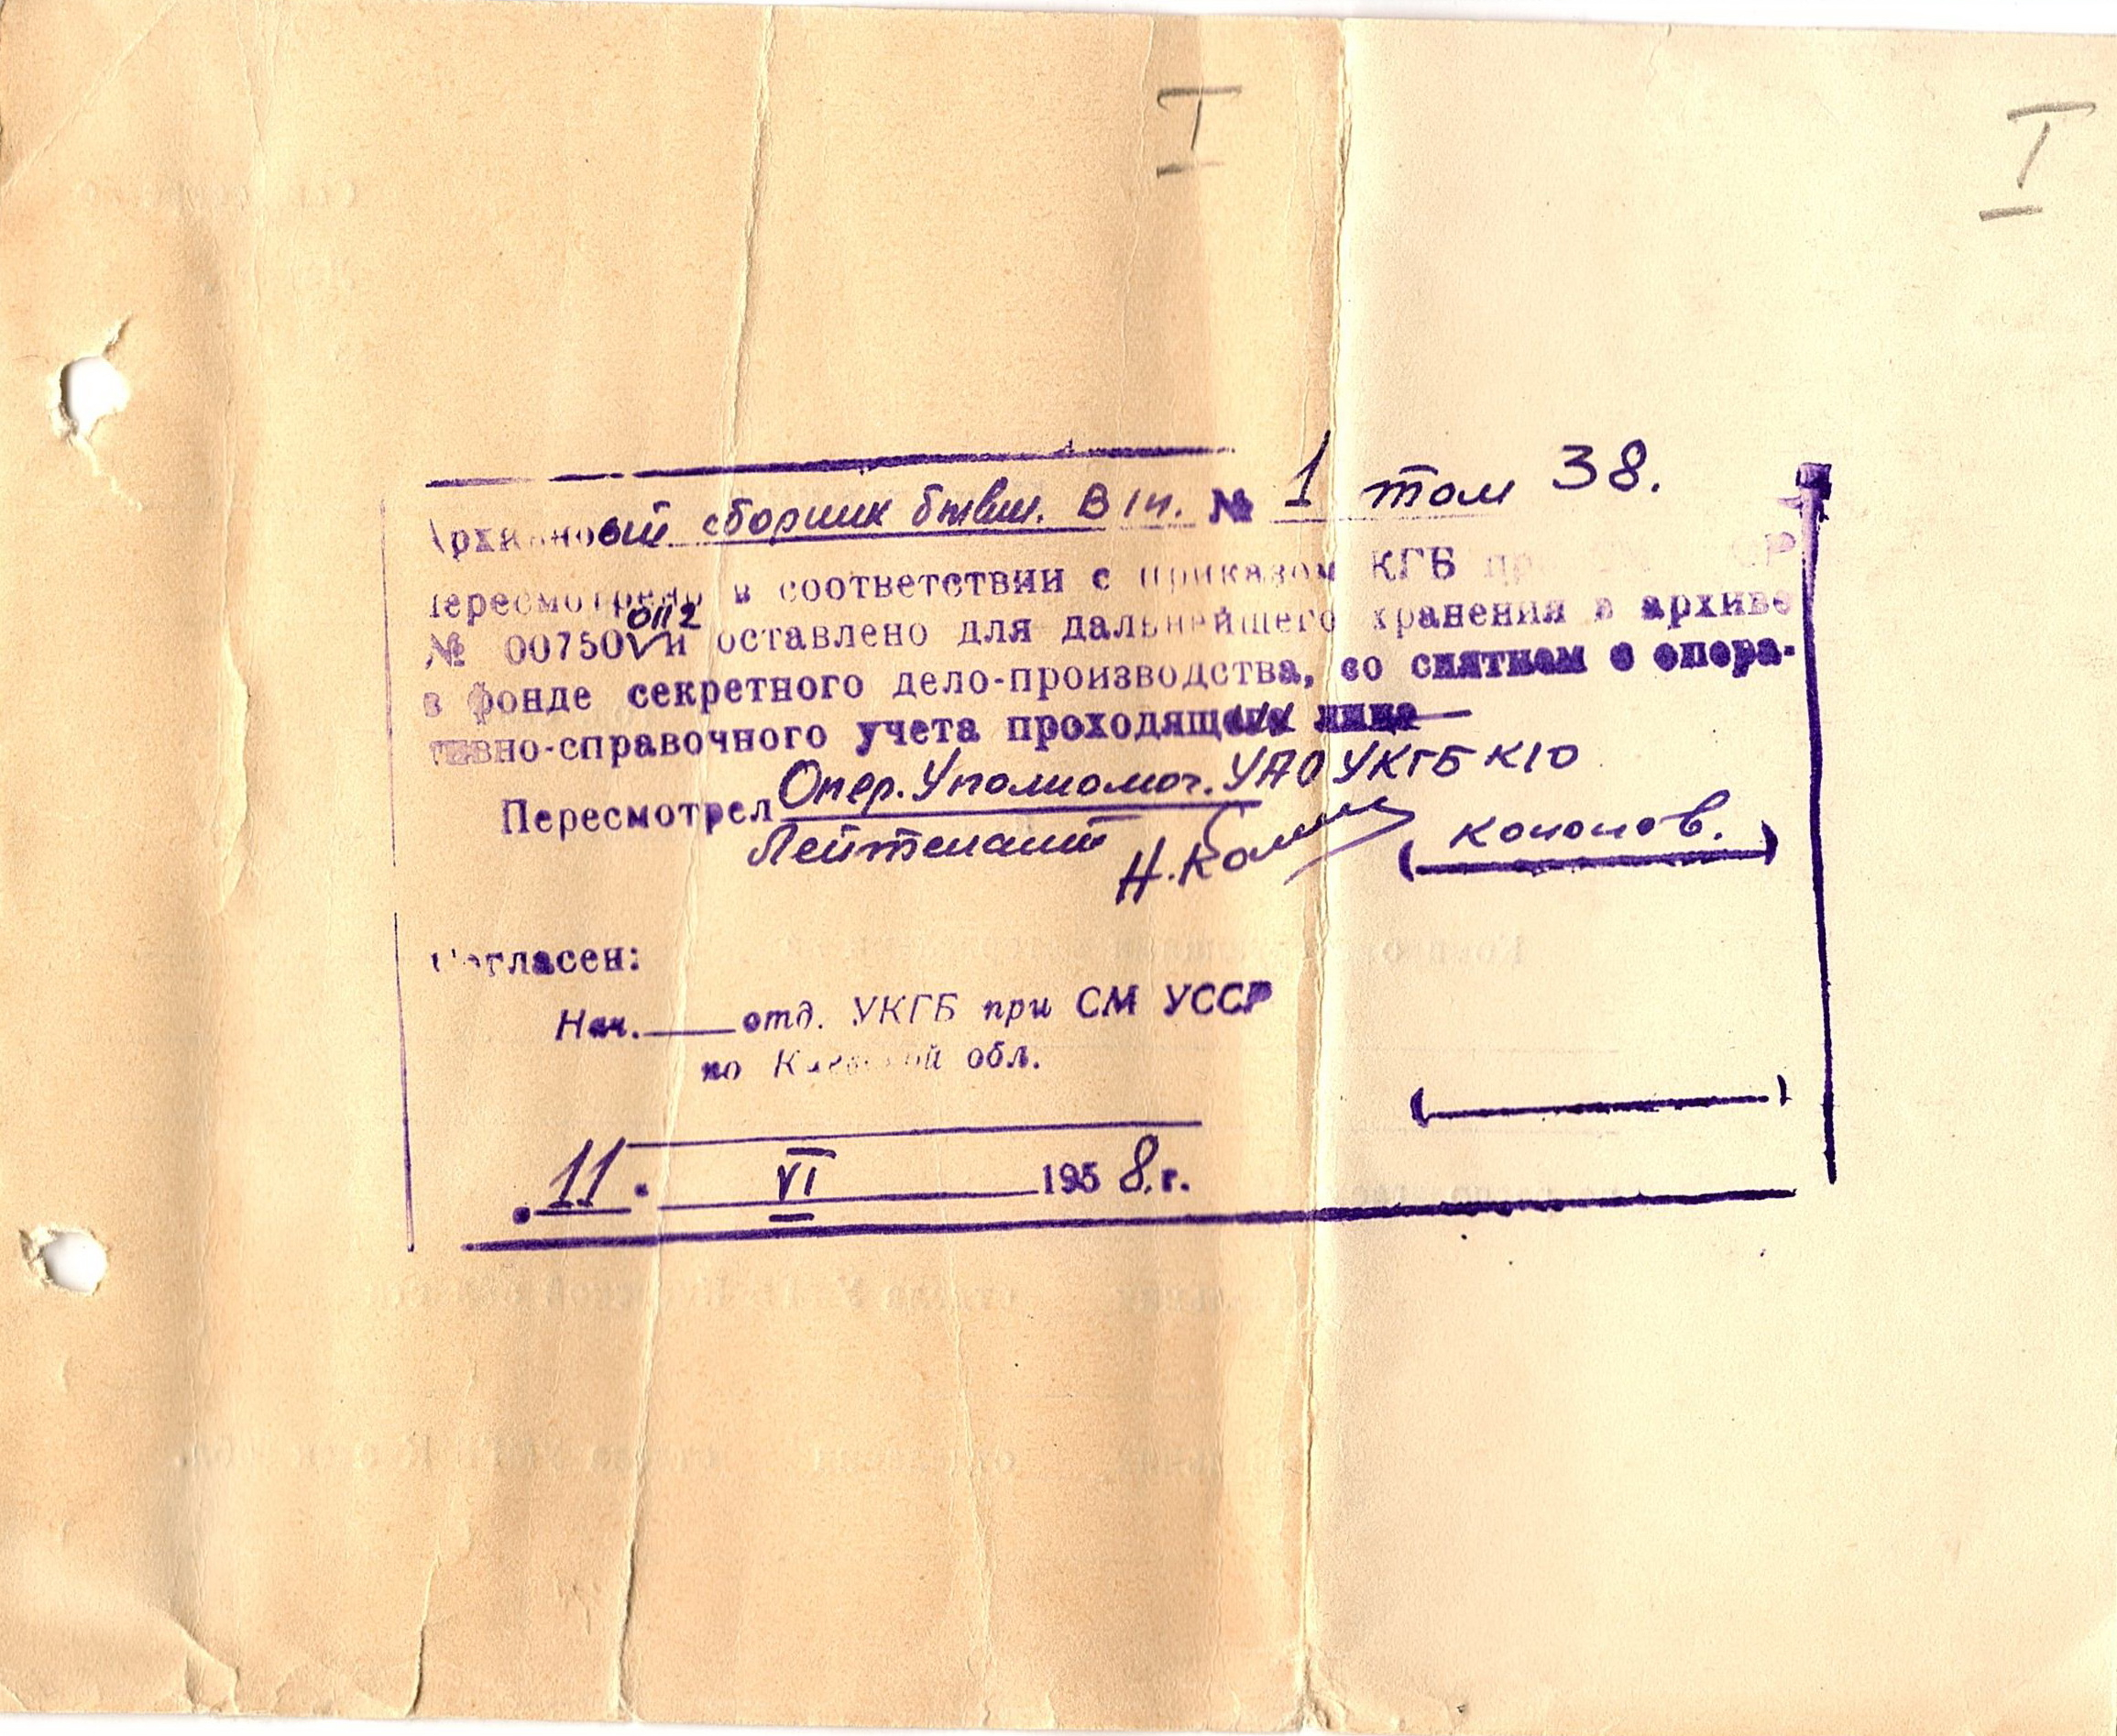 I
I
Архивный сборник № 1 том 38.
пересмотрено в соответствии с приказом КГБ
0112
№ 00750 V и оставлено для дальнейшего хранения в архиве
в фонде секретного дело-производства, со снятием с опера-
тивно-справочного учета проходящего лица
Пересмотрел Опер. Уполномоч. УАО УКГБ КЮ
Лейтенант Н. (Кононов.)
Согласен:
Нач. отд. УКГБ при СМ УССР
по Киевской обл.
11. VI 1958. г.